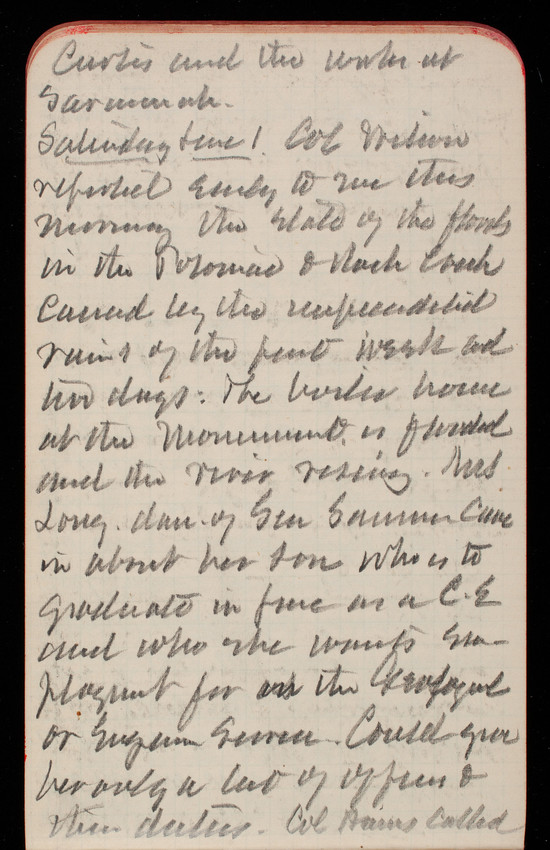 Curtis and the work at
Savannah.
Saturday June 1. Col Wilson
reported early to me this
morning the state of the floods
in the Potomac & Rock Creek
caused by the unprecedented
rains of the past week and
two days. The boiler house
at the Monument is flooded
and the river rising. Mrs
Long. dau. of Gen Sumner came
in about her son who is to
graduate in June as a C.E
and who she wants Em-
ployment for on the Geological
or Engineer Service. Could give
her only a list of officers &
their duties. Col called